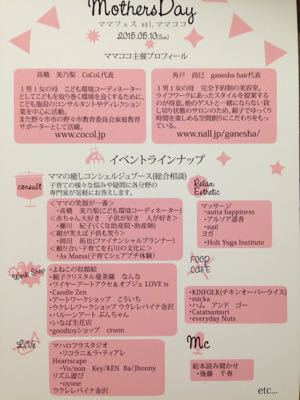 MothersDay
ママフェス vol.ママココ
2015.05.10(Sun)
ママココ主催プロフィール
高橋 美乃梨 CoCoL代表
1男1女の母 こども環境コーディネーター
としてこどもを取り巻く環境を良くするために、
こども施設のコンサルタントやディレクション
業を中心に活動。
また野々市市の野々市市教育委員会家庭教育
サポーターとして活躍。
www.cocol.jp
角戸 尚巳 ganesha hair代表
1男1女の母 完全予約制の美容室。
ライフワークにあったスタイルを提案する
のが得意。他のゲストと一緒にならない貸
し切り状態のサロンのため、親子でゆっくり
時間を楽しめる空間創りにこだわりをもっ
ている。
www.nall.jp/ganesha/
イベントラインナップ
consult
ママの癒しコンシェルジュブース(総合相談)
子育ての様々な悩みや疑問に各分野の
専門家が気軽にお答えします。
<ママの笑顔が一番>
・高橋 美乃梨(こども環境コーディネーター)
<赤ちゃん大好き 子供が好き 人が好き>
・瀬川 紀子(くなひ助産院・助産師)
<親が笑えば子供も笑う>
・岡田 拓也(ファイナンシャルプランナー)
<織り合い子育てを石川の文化に>
・As Mama(子育てシェアプチ体験)
Relax
Esthetic
マッサージ
・auita happiness
・アルソア道香
・nail
ヨガ
・Holt Yoga Institute
Work Shop
・よねこの似顔絵
・親子クリスタル曼荼羅 なんな
・ワイヤーアートアクセ&オブジェ LOVE is
・Candle Zen
・アートワークショップ こういち
・ウクレレワークショップ ウクレレパイン金沢
・バルーンアート ぷんちゃん
・いなば生花店
・goodtoyショップ croon
FOOD
CAFE
・KINFOLK(チキンオーバーライス)
・micka
・ハム アンド ゴー
・Catatsumuri
・everyday Nuts
LiVe
マハロフラスタジオ
・リコラニ&ラ・ティアレ
Heartscape
・Vo/noon Key/KEN Ba/Jhonny
リズム遊び
・oyone
ウクレレパイン金沢
Mc
絵本読み聞かせ
・後藤 千春
etc...